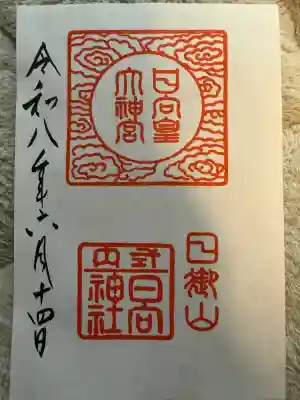 日向皇
大神宮
日御山
式内
日向
神社
令和八年六月十四日